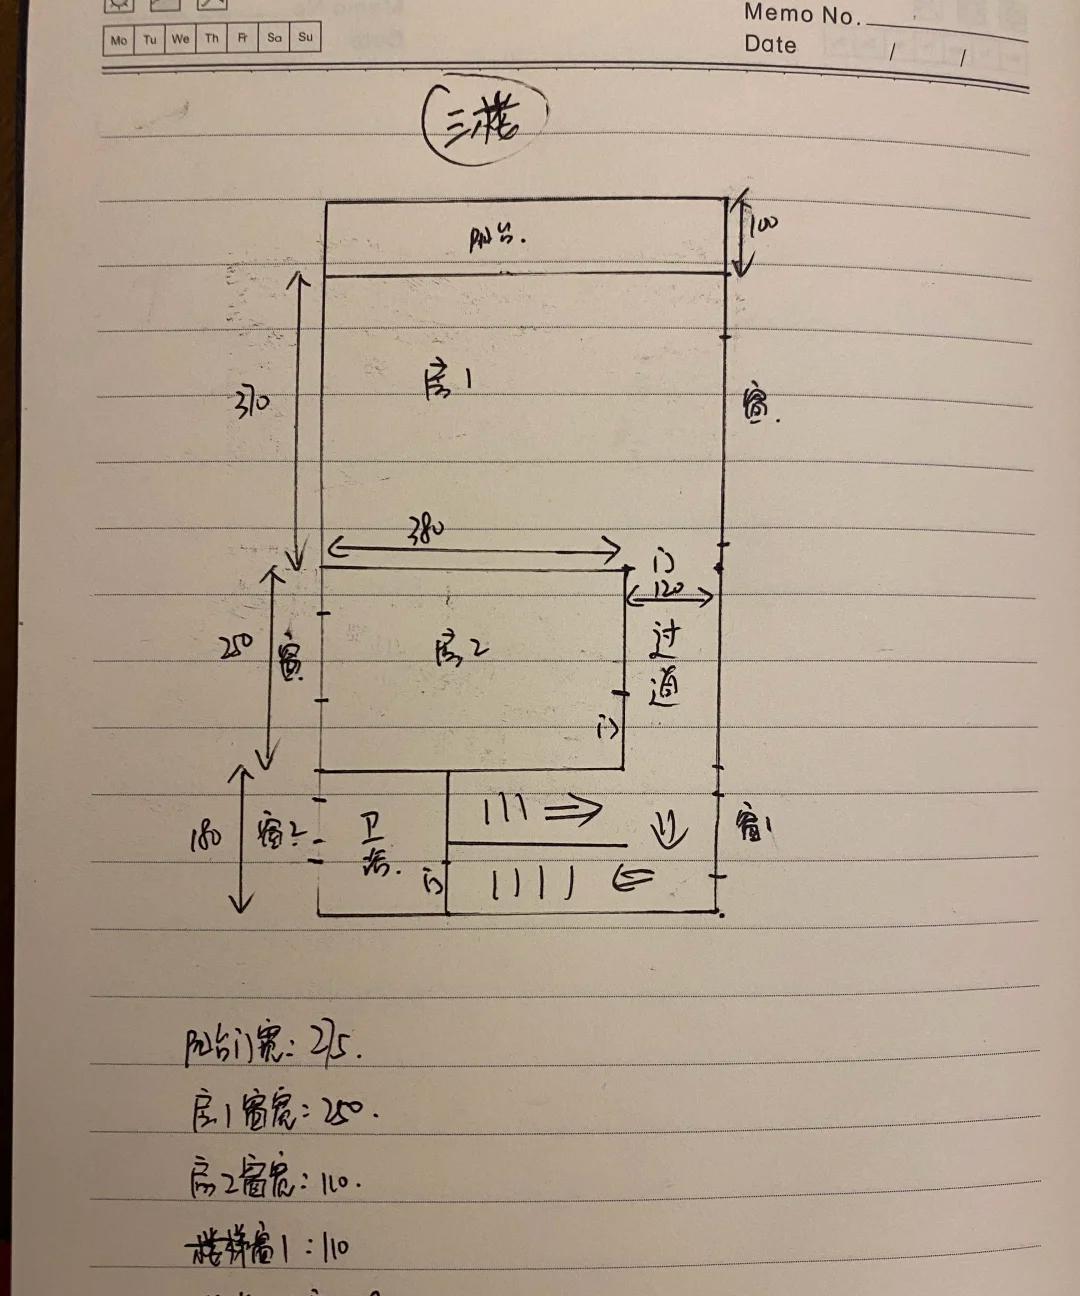 Memo No.
Mo Tu We Th Fr Sa Su
Date / /
三楼
阳台.
100
房1
370
窗.
380
门
120
250
窗.
房2
过
道
门
180
窗2
卫
浴.
窗1
门
阳台门宽: 275.
房1窗宽: 250.
房2窗宽: 110.
楼梯窗1: 110